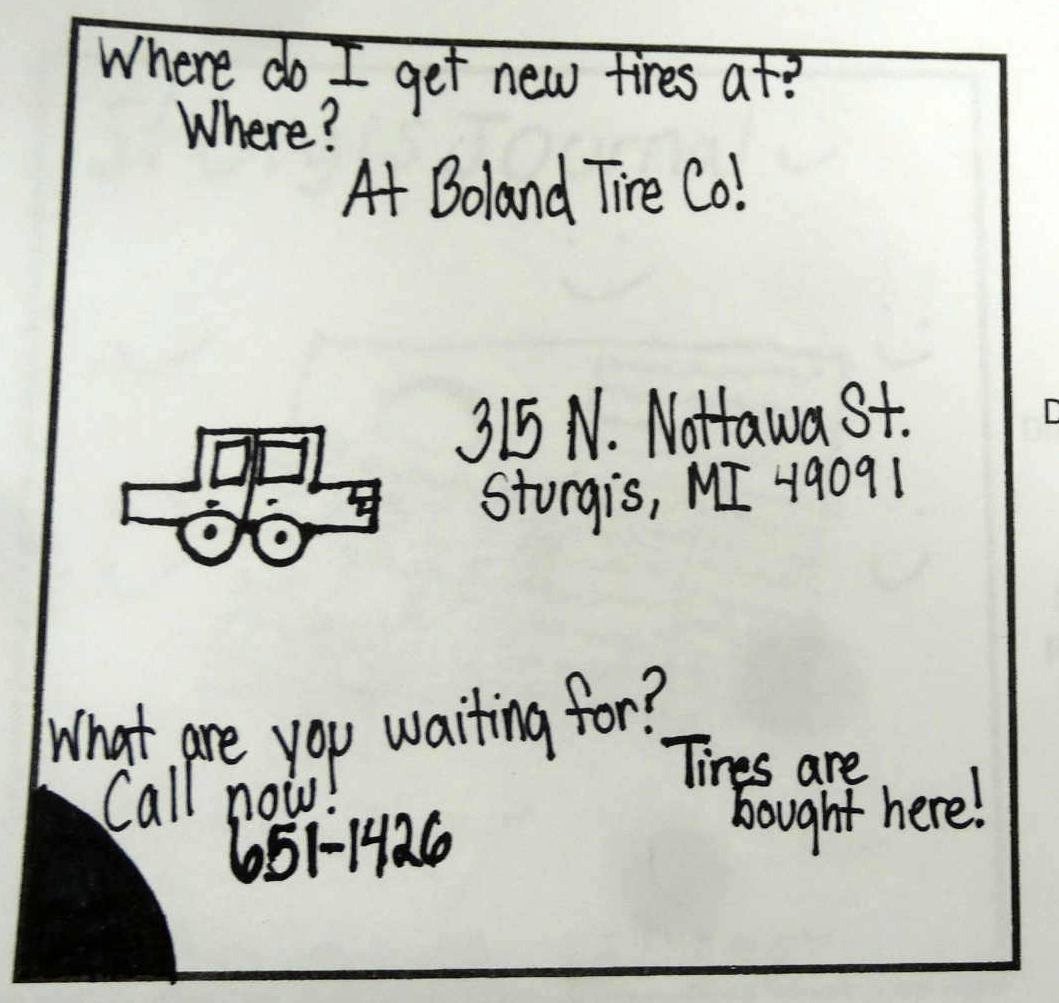 Where do I get new tires at?
Where?
At Boland Tire Co!
315 N. Nottawa St.
Sturgis, MI 49091
What are you waiting for?
Call now!
651-1426
Tires are
bought here!